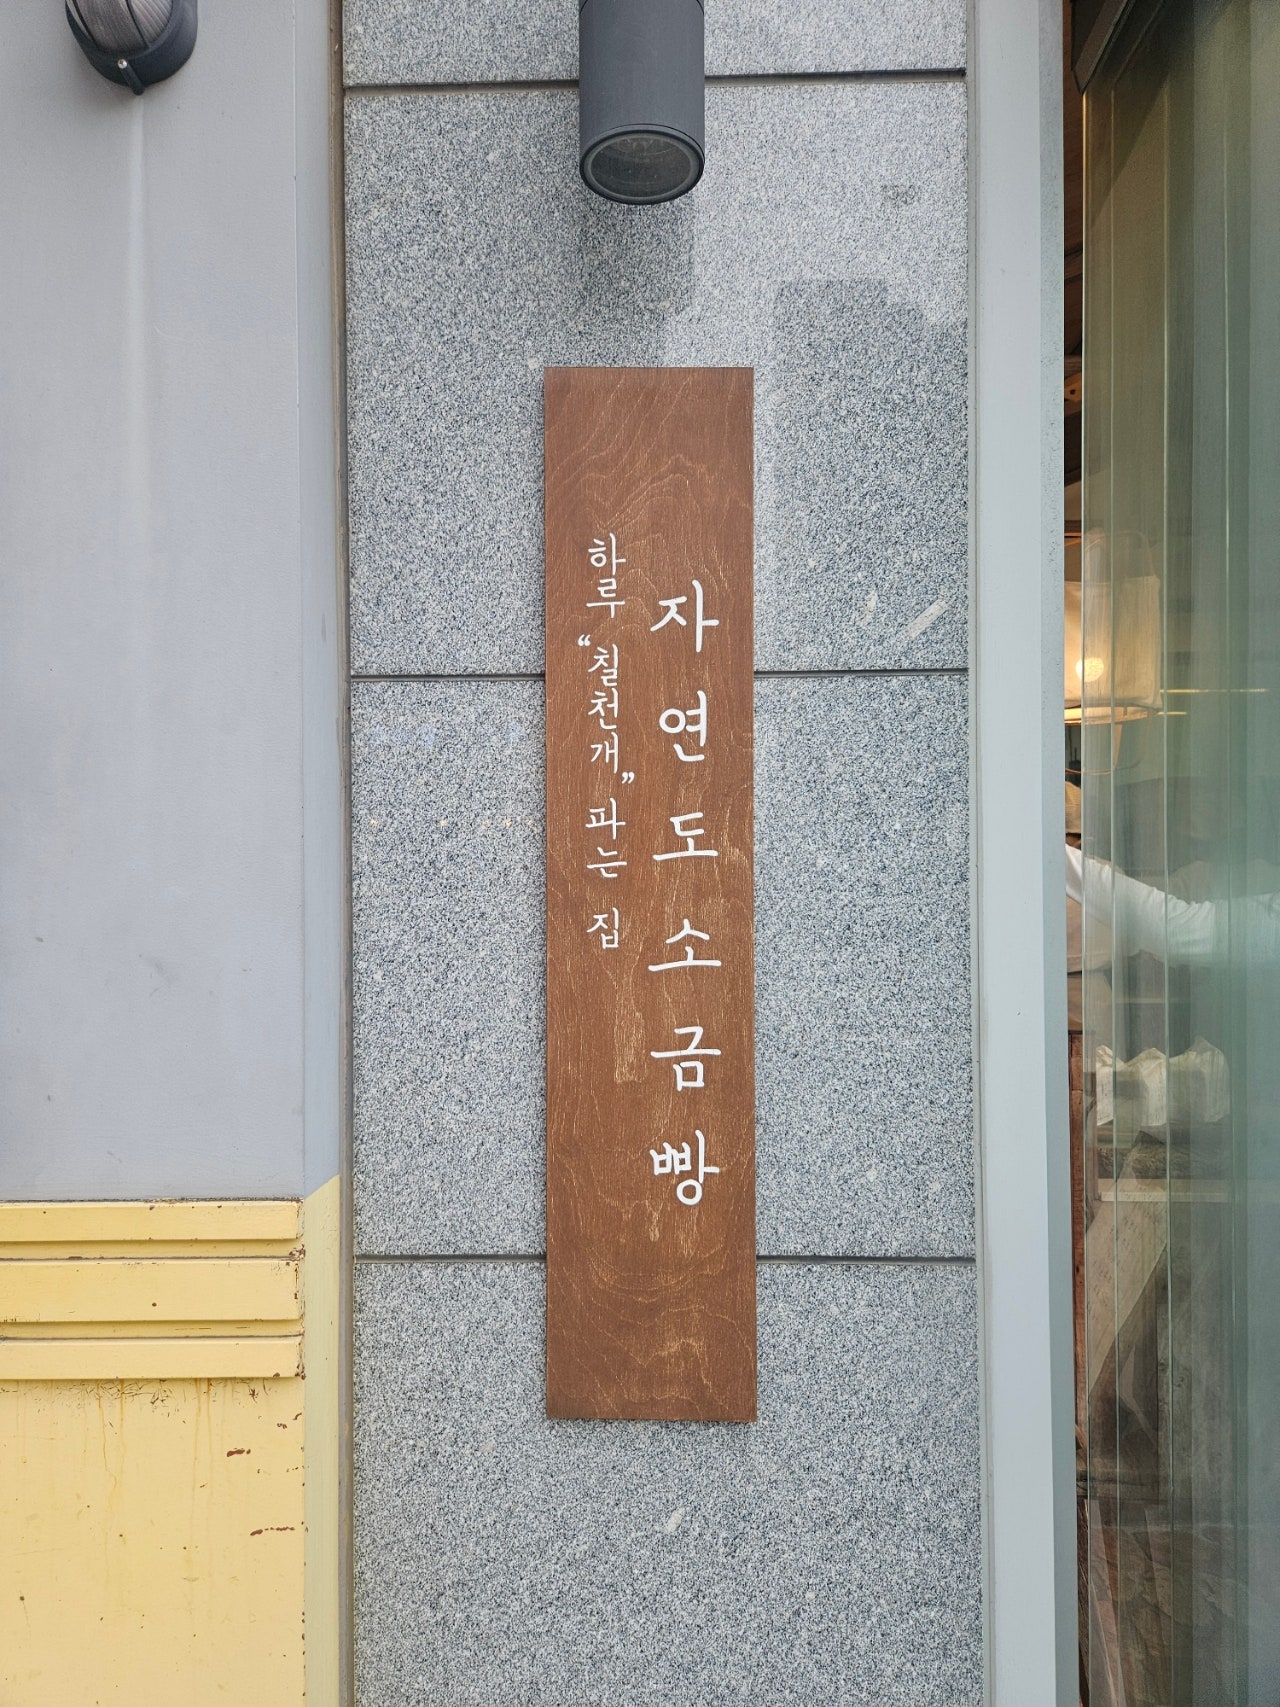 자연도소금빵
하루 “칠천개” 파는 집